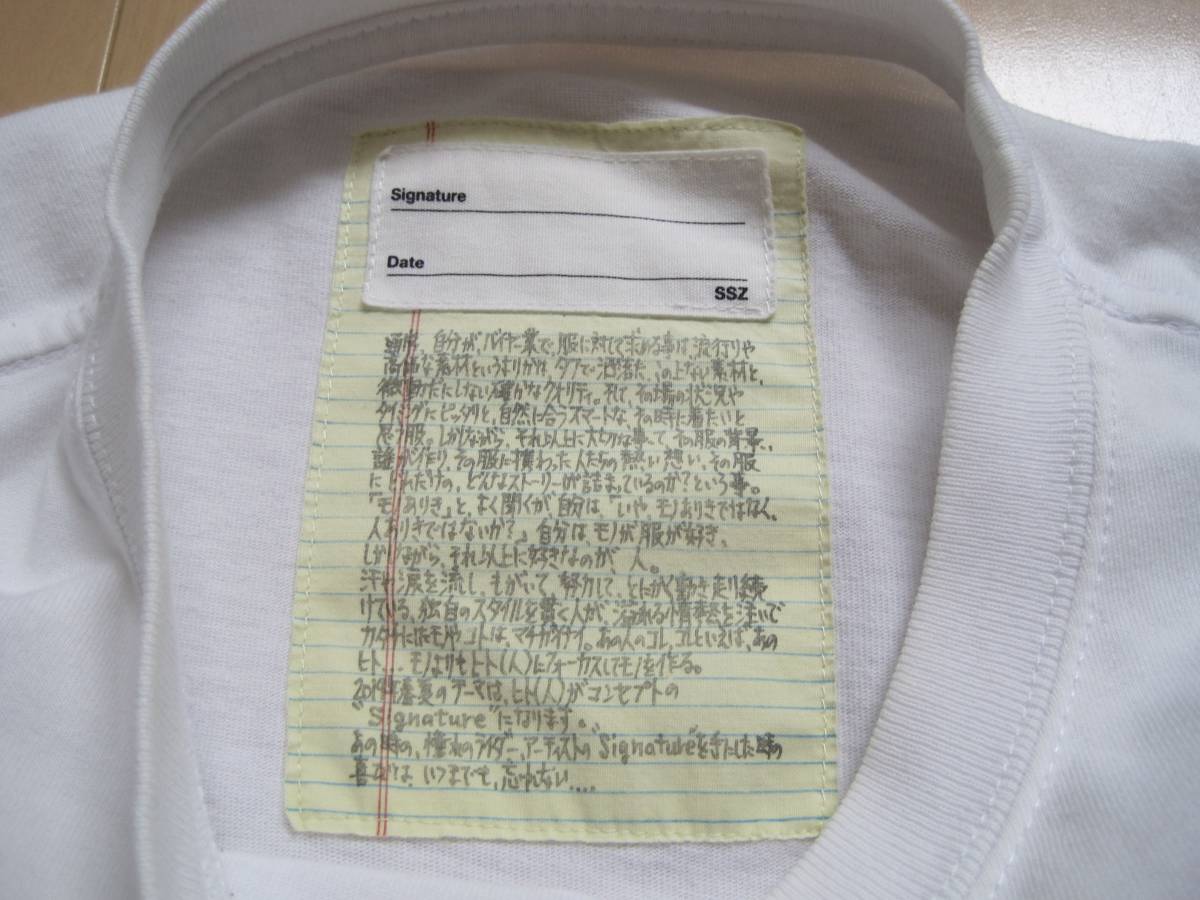 Signature
Date
SSZ
自分が、バイヤー業で、服に対して求める事は、流行りや
高価な素材というよりかは、タフで洒落た、この上ない素材と、
微動だにしない確かなクオリティ。そして、その場の状況や
タイミングにピッタリと、自然に合うスマートな、その時に着たいと
思う服。しかしながら、それ以上に大切な事って、その服の背景、
誰が作り、その服に携わった人たちの熱い想い、その服
にどれだけの、どんなストーリーが詰まっているのか？という事。
「モノありき」と、よく聞くが自分は、「いや、モノありきではなく、
人ありきではないか？」自分は、モノが服が好き、
しかしながら、それ以上に好きなのが、人。
汗や涙を流し、もがいて、努力して、とにかく動き走り続
けている、独自のスタイルを貫く人が、溢れる情熱を注いで
カタチにしたモノやコトは、マチガイナイ。あの人のコレ、コレといえば、あの
ヒト... モノよりもヒト(人)にフォーカスしてモノを作る。
2019年春夏のテーマは、ヒト(人)がコンセプトの
"Signature"になります。
あの時の、憧れのライダー、アーティストの"Signature"を手にした時の
喜びは、いつまでも、忘れない....